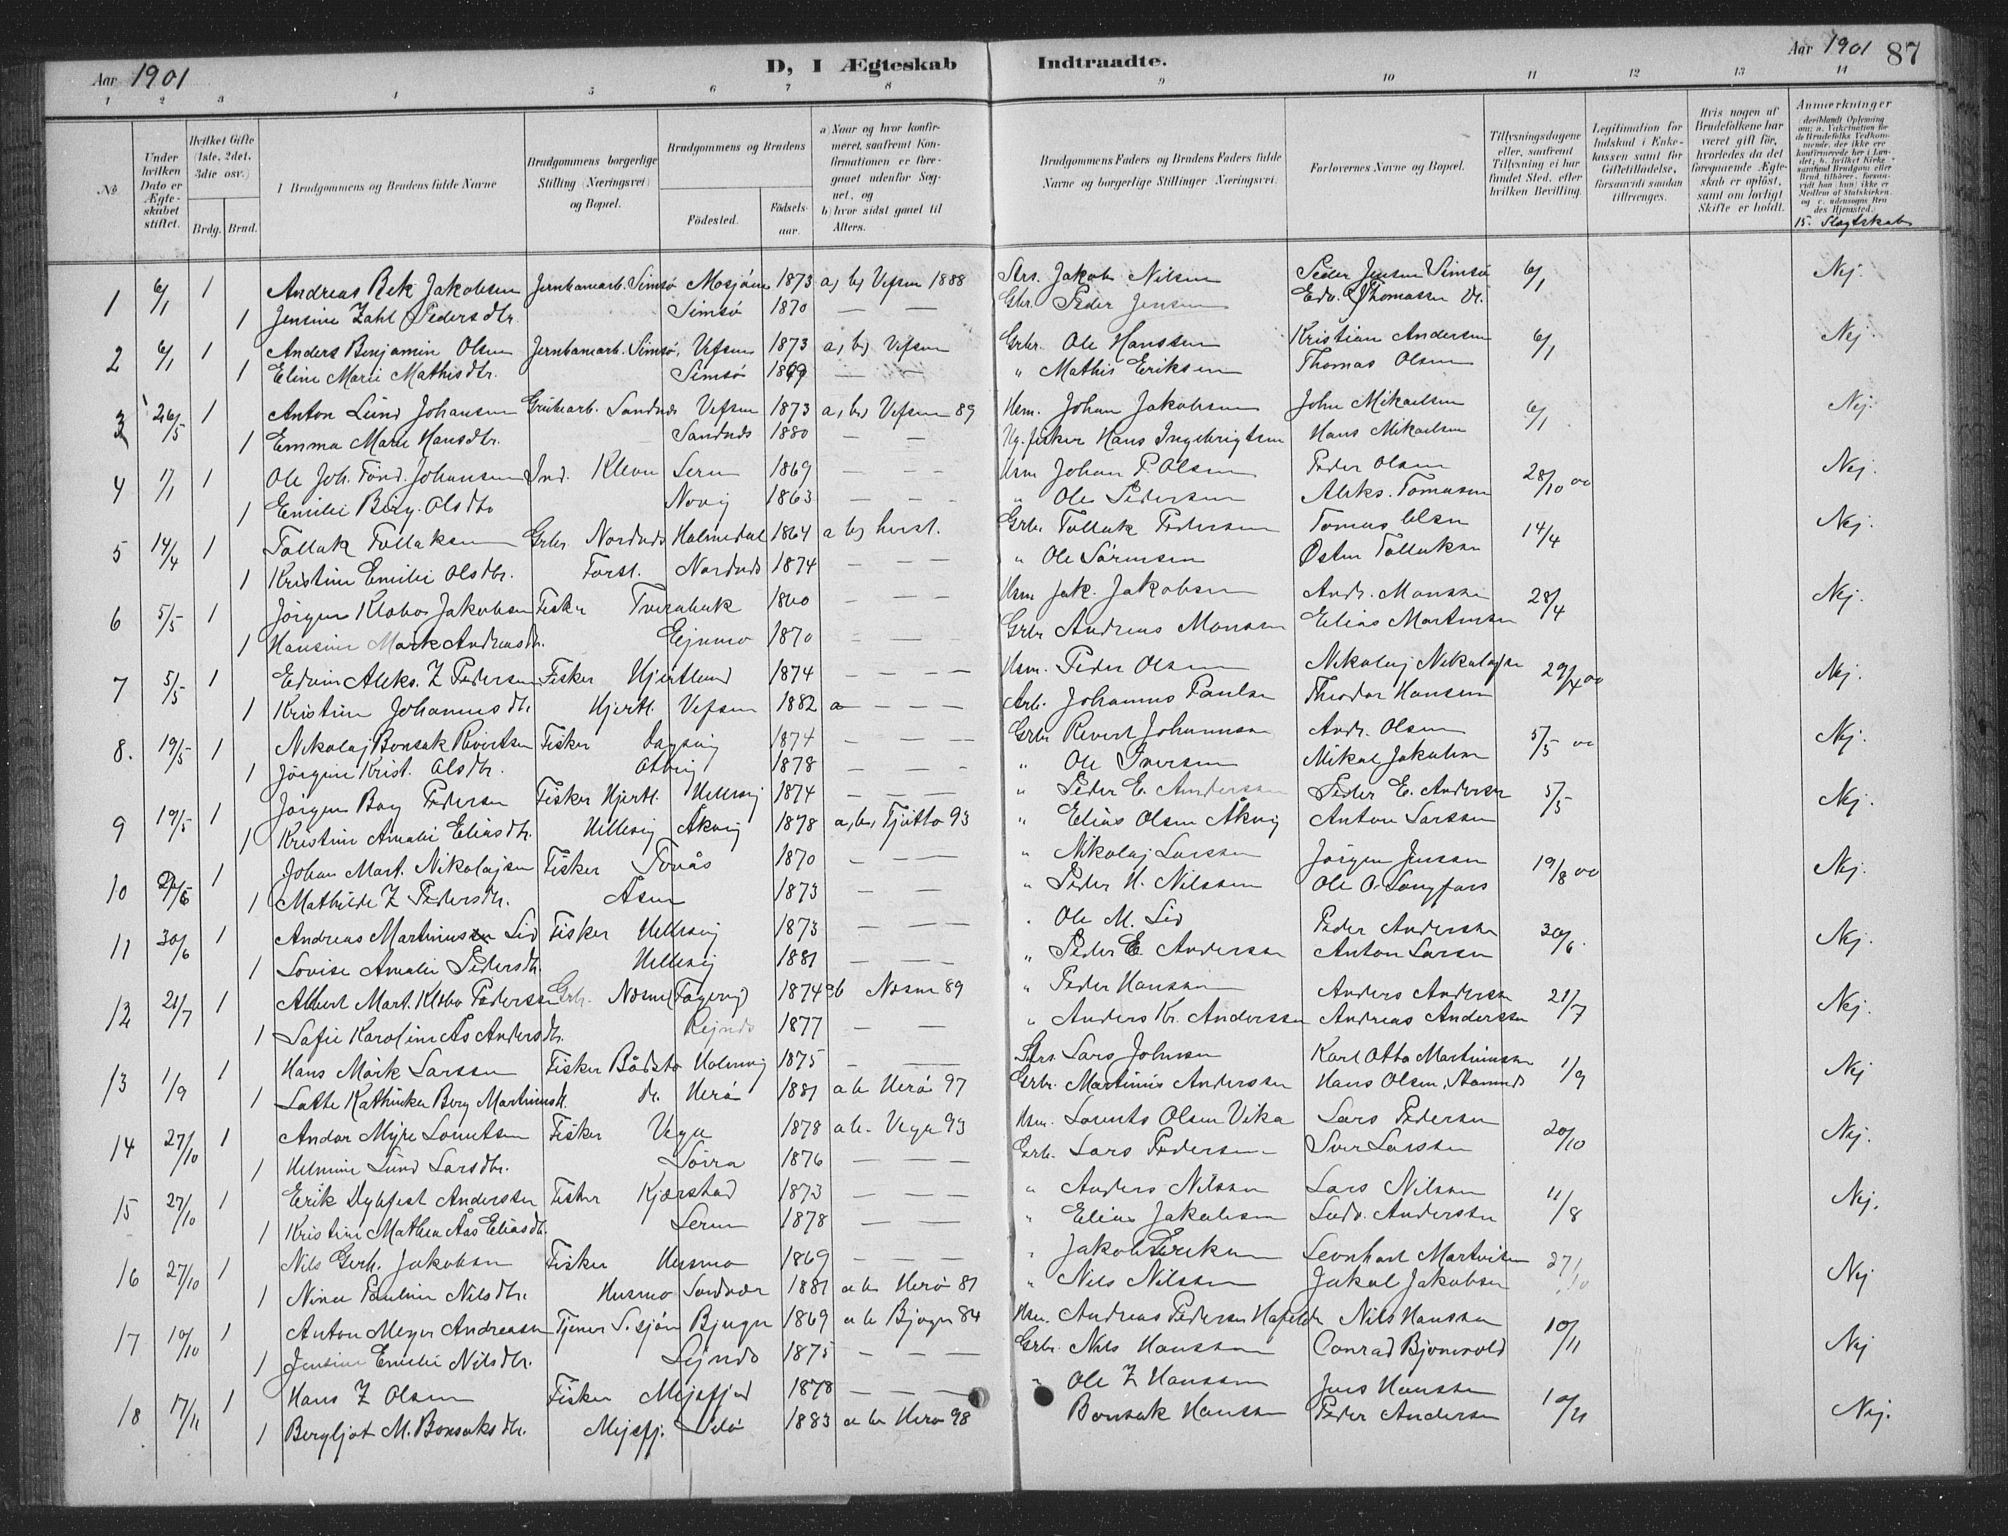 Aar 1901 D, I Ægteskab Indtraadte. Aar 1901 87
1 2 3 4 5 6 7 8 9 10 11 12 13 14
No
Under hvilken Dato er Ægteskabet stiftet.
Hvilket Gifte (1ste, 2det, 3die osv.)
Brdg. Brud.
1 Brudgommens og Brudens fulde Navne
Brudgommens borgerlige Stilling (Næringsvei) og Bopæl.
Brudgommens og Brudens
Födested. Födselsaar.
a) Naar og hvor konfirmeret, saafremt Konfirmationen er foregaaet udenfor Sognet, og
b) hvor sidst gaaet til Alters.
Brudgommens Faders og Brudens Faders fulde Navne og borgerlige Stillinger Næringsvei.
Forlovernes Navne og Bopæl.
Tillysningsdagene eller, saafremt Tillysning ei har fundet Sted, efter hvilken Bevilling.
Legitimation for Indskud i Enkekassen samt for Giftetilladelse, forsaavidt saadan tiltrænges.
Hvis nogen af Brudefolkene har været gift før, hvorledes da det foregaaende Ægteskab er opløst, samt om lovligt Skifte er holdt.
Anmærkninger
15. Slægtskab
1 6/1 1 Andreas Bek Jakobsen Jernbanearb. Simsø Mosjøen 1873 a, b, Vefsen 1888 Strs. Jakob Nilsen Peder Jensen Simsø 6/1 Nej.
1 Jensine Zahl Pedersdtr. Simsø 1870 — — Gbr. Peder Jensen Edv. Thomassen
2 6/1 1 Anders Benjamin Olsen Jernbanearb. Simsø, Vefsen 1873 a, b, Vefsen Grbr. Ole Hanssen Kristian Andersen 6/1 Nej.
1 Eline Marie Mathisdtr. Simsø — — " Mathis Eriksen Thomas Olsen
3 26/5 1 Anton Lund Johansen Grubearb. Sandnes Vefsen 1873 a, b, Vefsen 89 Hsm. Johan Jakobsen John Mikaelsen 6/1 Nej.
1 Emma Marie Hansdtr. Sandnes 1880 — — fisker Hans Ingebrigtsen Hans Mikaelsen
4 1/1 1 Ole Joh. Johansen Ind. Kleven 1869 — — — Hsm Johan P. Olsen Peder Olsen 28/10 00 Nej.
1 Emilie Berg Olsdtr Novig 1863 — — - " Ole Pedersen Aleks. Tomasen
5 14/4 1 Tollak Tollaksen Grbr Nordnes Holmedal 1864 a b, Grbr Tollak Pedersen Tomas Olsen 14/4 Nej.
1 Kristine Emilie Olsdtr. Forsl. Nordnes 1874 — — — " Ole Sørensen Østen Tollaksen
6 5/5 1 Jørgen Klobo Jakobsen Fisker Tverabak 1860 — — — Hsm Jak. Jakobsen Andr. Monssen 28/4 Nej.
1 Hansine Mørk Andreasdtr. 1870 — — Grbr Andreas Monssen Elias Martinsen
7 5/5 1 Edvin Aleks. Z Pedersen Fisker Hjertlund 1874 — — — Hsm. Peder Olsen Nikolaj Nikolajsen 29/4 00 Nej.
1 Kristine Johannesdtr Hjertl. Vefsen 1882 a — — — Arb. Johannes Paulsen Theodor Hansen
8. 19/5 1 Nikolaj Bonsak Rivertsen Fisker Dagsvig 1874 — — — Grbr Revert Johannesen Andr. Olsen 5/5 00 Nej.
1 Jørgine Krist. Olsdtr. 1878 — — - " Ole Iversen Mikal Jakobsen
9 19/5 1 Jørgen Bay Pedersen Fisker Hjertl. Hellesvig 1874 — — — " Peder E. Anderssen Peder E. Andersen 5/5 Nej.
1 Kristine Amalie Eliasdtr. Hellesvig Åkvig 1878 a, b, Tjøtta 93 " Elias Olsen Åkvig Anton Larssen
10 1 Johan Mart. Nikolajsen Fisker Tovås 1870 — — — " Nikolaj Larssen Jørgen Jenssen 19/8 00 Nej.
1 Mathilde Z Pedersdtr. Åsen 1873 — — — " Peder H. Nilssen Ole O. Langfors
11 30/6 1 Andreas Martinussen Lid Fisker Hellesvig 1873 — — — Ole M. Lid Peder Anderssen 30/6. Nej.
1 Lovise Amalie Pedersdtr. Hellesvig 1881 — — — " Peder E Anderssen Anton Larsen
12 21/7 1 Albert Mart. Klobo Pederssen Grb. Nesna (Fagervig) 1874 ab Nesna 89 " Peder Hanssen Anders Anderssen 21/7 Nej.
1 Sofie Karoline Ås Andersdtr. Rejnes 1877 — — " Anders Kr. Anderssen Andreas Anderssen
13 1/9 1 Hans Mørk Larssen Fisker Bådsto Holmvig 1875 — — — Strs Lars Johnsen Karl Otto Martinussen 1/9 Nej
1 Lotte Kathinka Berg Martinusdtr. do. Herø 1881 a b Herø 97 Grbr. Martinus Anderssen Hans Olsen, Stamnes
14 27/10 1 Andor Myre Lorntsen Fisker Vega 1878 a b. Vega 93 Hsm. Lornts Olsen Vika Lars Pedersen 20/10 Nej.
1 Helmine Lund Larsdtr. Søvra 1876 — — — Grb. Lars Pedersen Sver Larssen
15 27/10 1 Erik Dybfest Anderssen Fisker Kjærstad 1873 — — — " Anders Nilssen Lars Nilssen 11/8 Nej.
1 Kristine Mathea Aas Eliasdtr. 1878 — — " Elias Jakobsen Ludv. Anderssen
16 27/10 1 Nils Gerh. Jakobsen Fisker Husmo 1869 — — — " Jakob Eriksen Leonhart Martinsen 27/10 Nej
1 Nina Pauline Nilsdtr. Husmo Sandvær 1881 a b Herø 81 " Nils Nilssen Jakob Jakobsen
17 10/10 1 Anton Meyer Andreasen Tjener S.sjøen Bjugn 1869 a b Bjugn 84 Hsm. Andreas Pedersen Nils Hanssen 10/11 Nej
1 Jensine Emilie Nilsdtr. Lejnes 1875 — — — Grbr. Nils Hanssen Conrad Bjørnvold
18 17/11 1 Hans Z Olsen Fisker Mejsfjord 1878 — — — " Ole Z Hanssen Jens Hanssen 10/11 Nej.
1 Bergljot M. Bonsaksdtr. Mejsfj. 1883 a b Herø 98 Bonsak Hanssen Peder Andersen